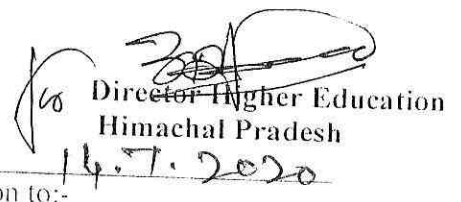 Director Higher Education
Himachal Pradesh
14.7.2020
on to:-